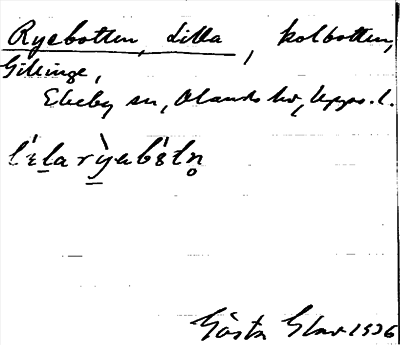 Ryebotten, Lilla, kolbotten,
Gillinge,
Ekeby sn, Olands hd, Upps. l.
Gösta Glav 1936